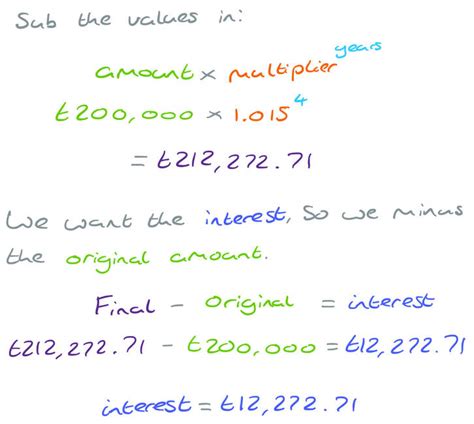 Sub the values in:
amount × multiplier^years
£200,000 × 1.015^4
= £212,272.71
We want the interest, so we minus
the original amount.
Final - Original = interest
£212,272.71 - £200,000 = £12,272.71
interest = £12,272.71